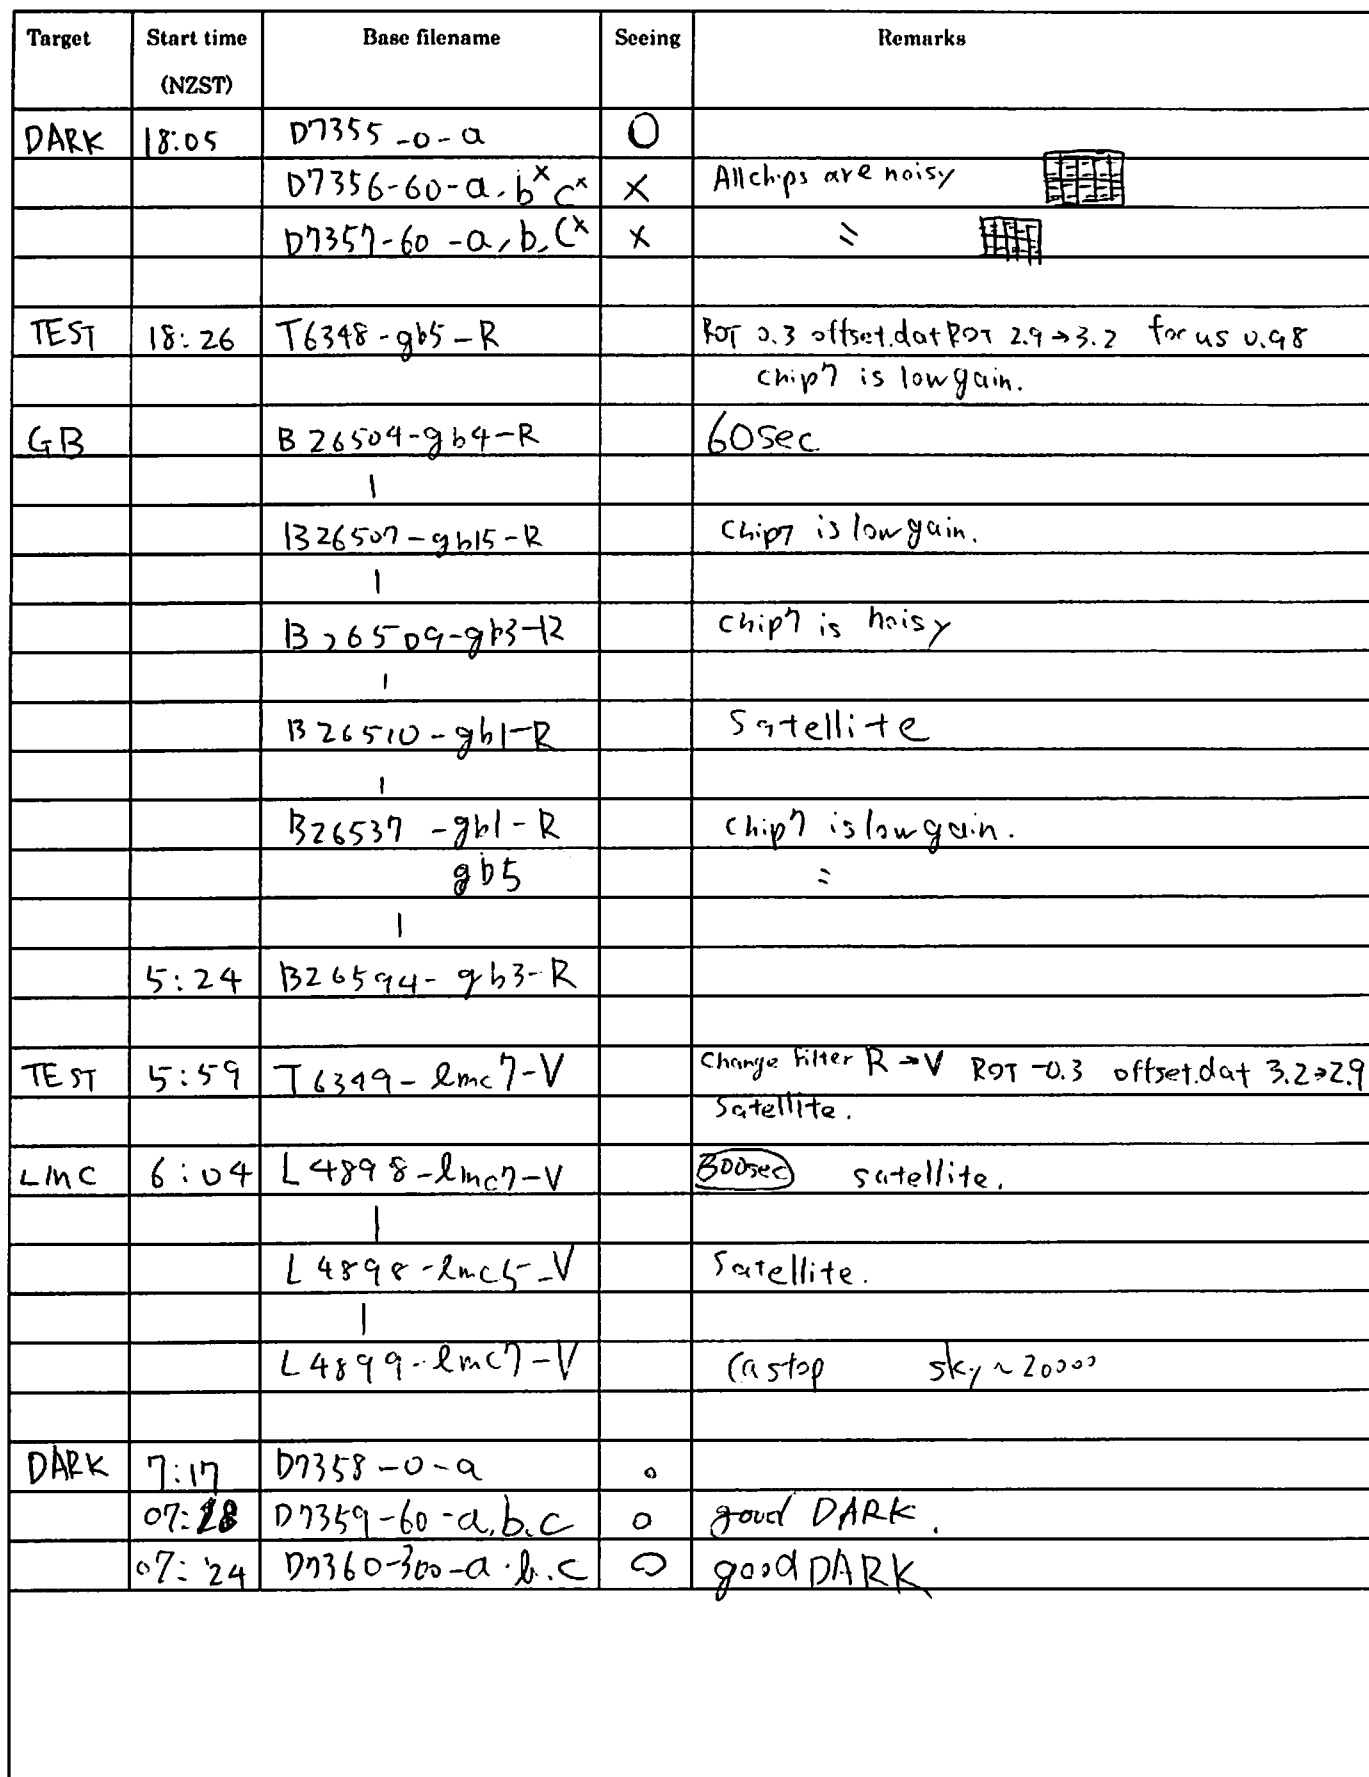 Target Start time Base filename Seeing Remarks
(NZST)
DARK 18:05 D7355-0-a O
D7356-60-a, b× c× × All chips are noisy
D7357-60-a, b, c× × 〃
TEST 18:26 T6348-gb5-R ROT 0.3 offset.dat ROT 2.9→3.2 focus 0.98
chip7 is low gain.
GB B26504-gb4-R 60sec
|
B26507-gb15-R chip7 is low gain.
|
B26509-gb3-R chip7 is noisy
|
B26510-gb1-R Satellite
|
B26537-gb1-R chip7 is low gain.
gb5 〃
|
5:24 B26594-gb3-R
TEST 5:59 T6349-lmc7-V Change filter R→V ROT -0.3 offset.dat 3.2→2.9
Satellite.
LMC 6:04 L4898-lmc7-V 300sec satellite.
|
L4898-lmc5-V Satellite.
|
L4899-lmc7-V stop sky~20000
DARK 7:17 D7358-0-a o
07: D7359-60-a, b, c o good DARK.
07:24 D7360-300-a.b.c O good DARK